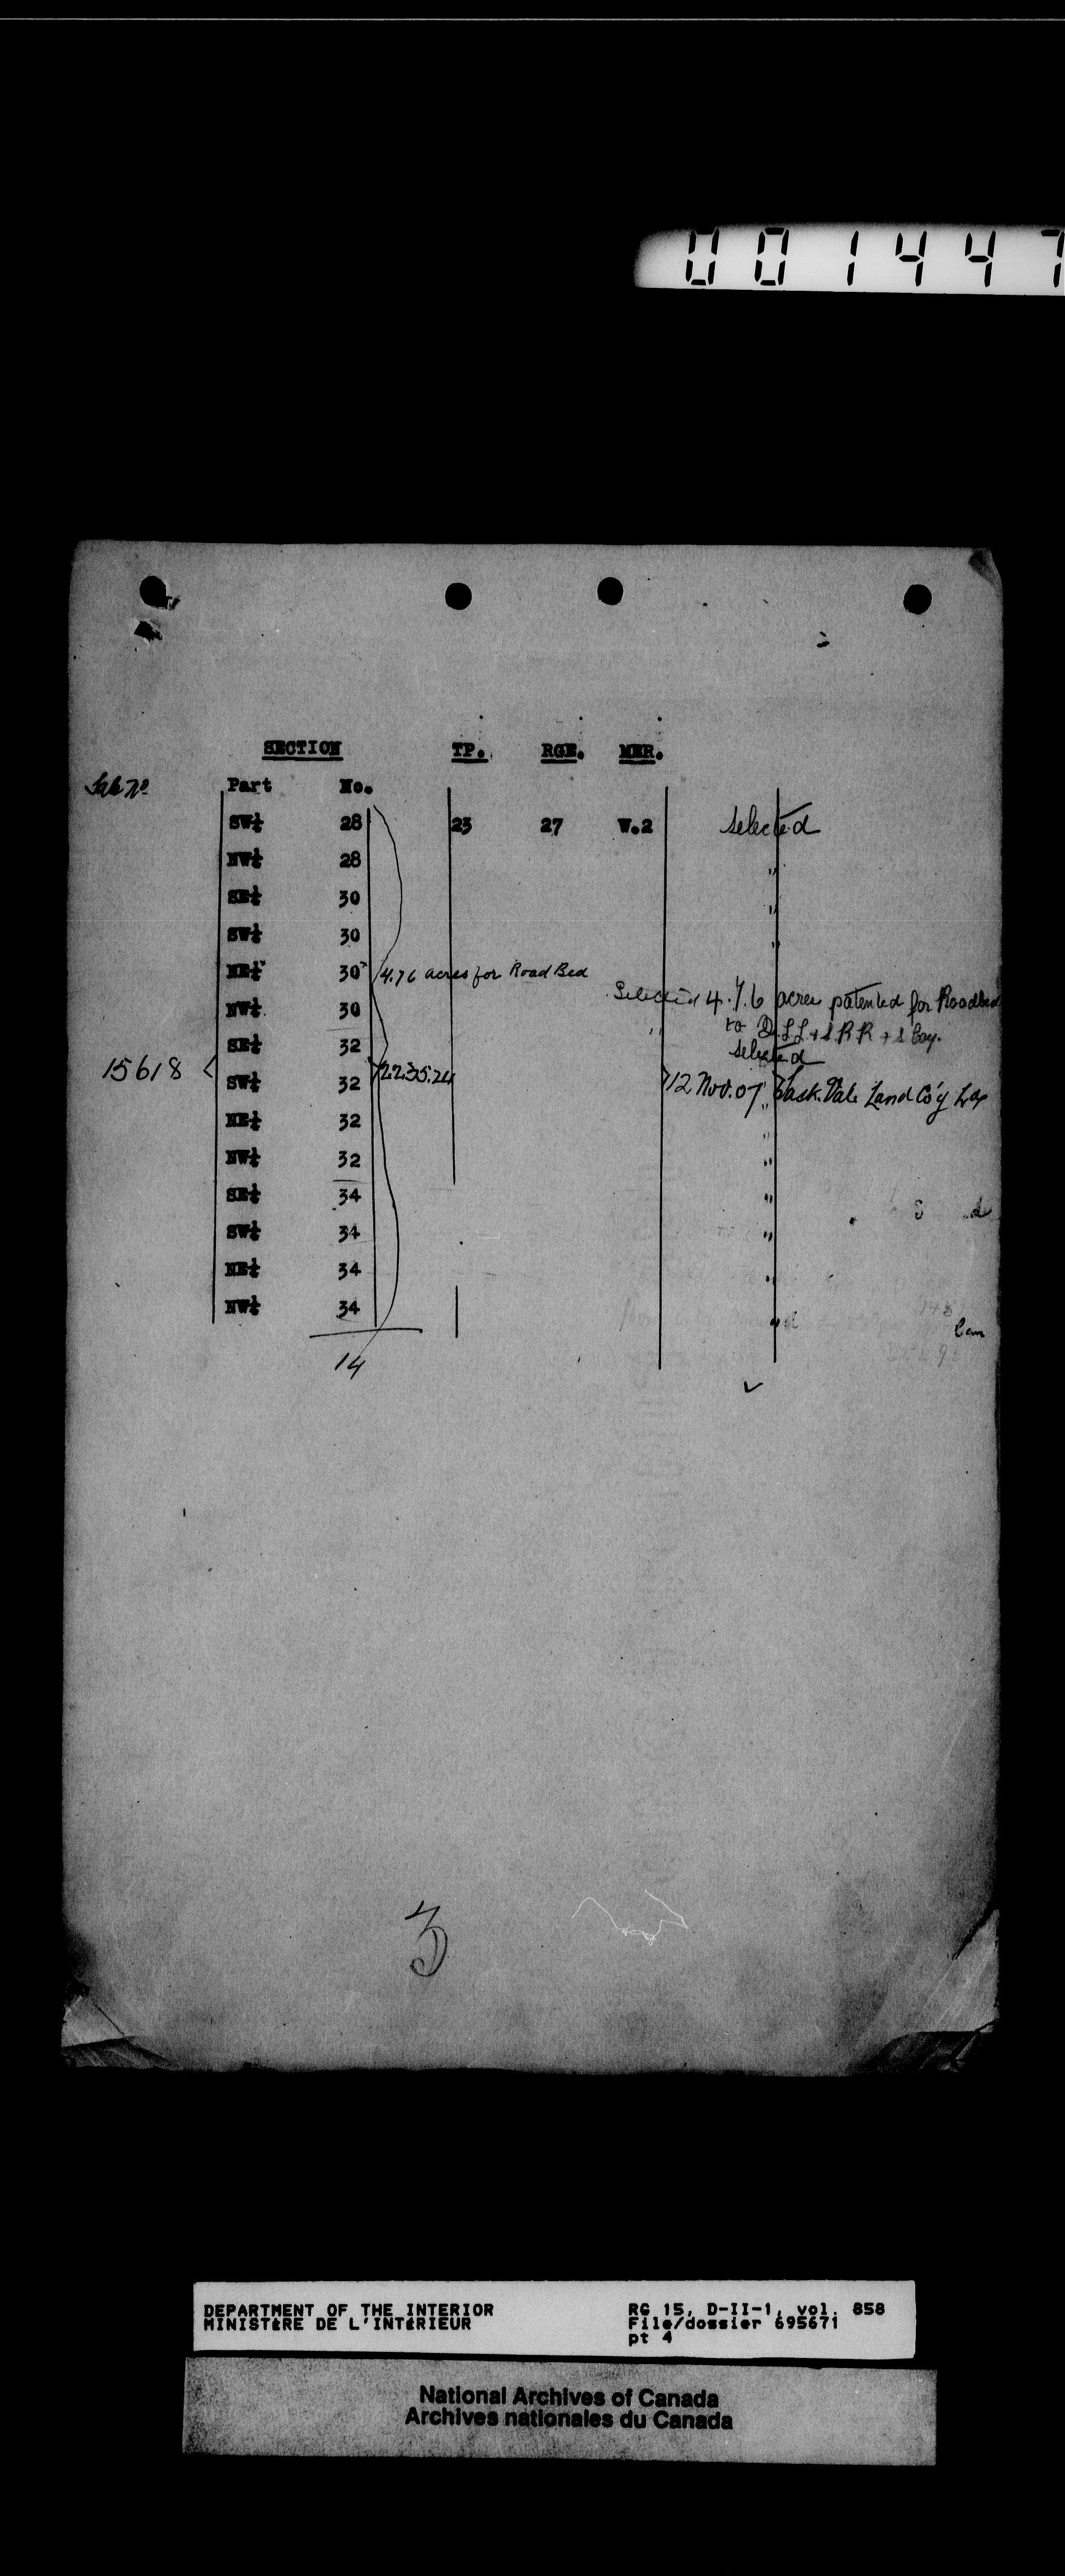 001447
SECTION TP. RGE. MER.
Part No.
SW¼ 28 23 27 W.2 Selected
NW¼ 28 "
SE¼ 30 "
SW¼ 30 "
NE¼ 30 4.76 acres for Road Bed
Selected 4.76 acres patented for Roadbed
NW¼ 30 " to Q. L. L. & S. R. R. & S Coy.
SE¼ 32 Selected
15618 SW¼ 32 2235.24 12 Nov. 07 " Sask. Vale Land Co'y
NE¼ 32 "
NW¼ 32 "
SE¼ 34 "
SW¼ 34 "
NE¼ 34 "
NW¼ 34 "
Can
14
3
DEPARTMENT OF THE INTERIOR RG 15, D-II-1, vol. 858
MINISTÈRE DE L'INTÉRIEUR File/dossier 695671
pt 4
National Archives of Canada
Archives nationales du Canada